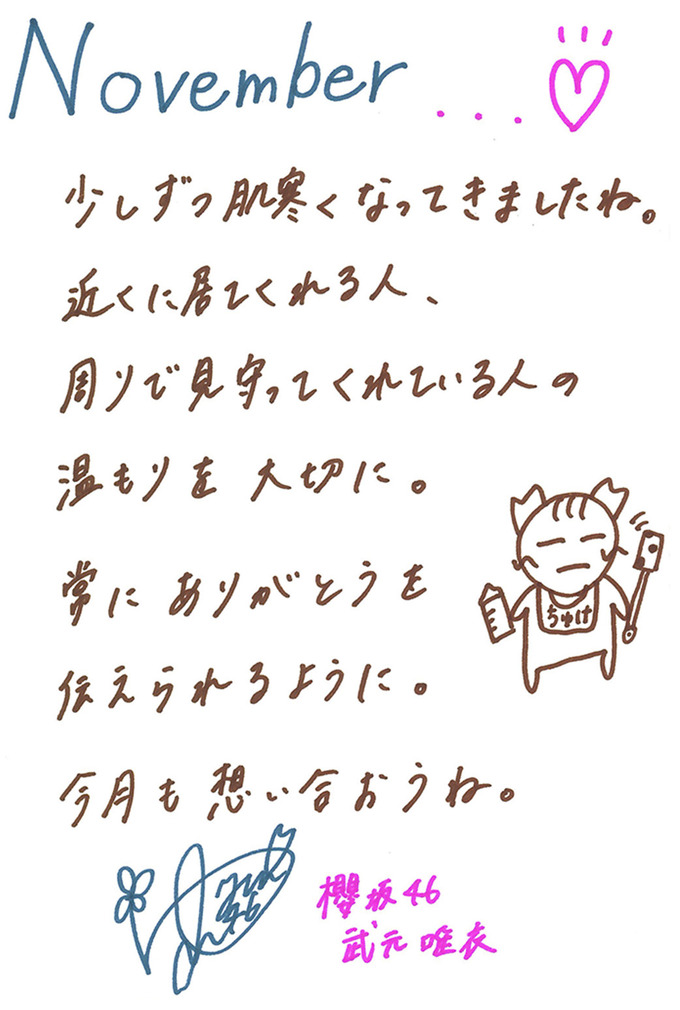 November...
少しずつ肌寒くなってきましたね。
近くに居てくれる人、
周りで見守ってくれている人の
温もりを大切に。
ちゅけ
常にありがとうを
伝えられるように。
今月も想い合おうね。
櫻坂46
武元唯衣